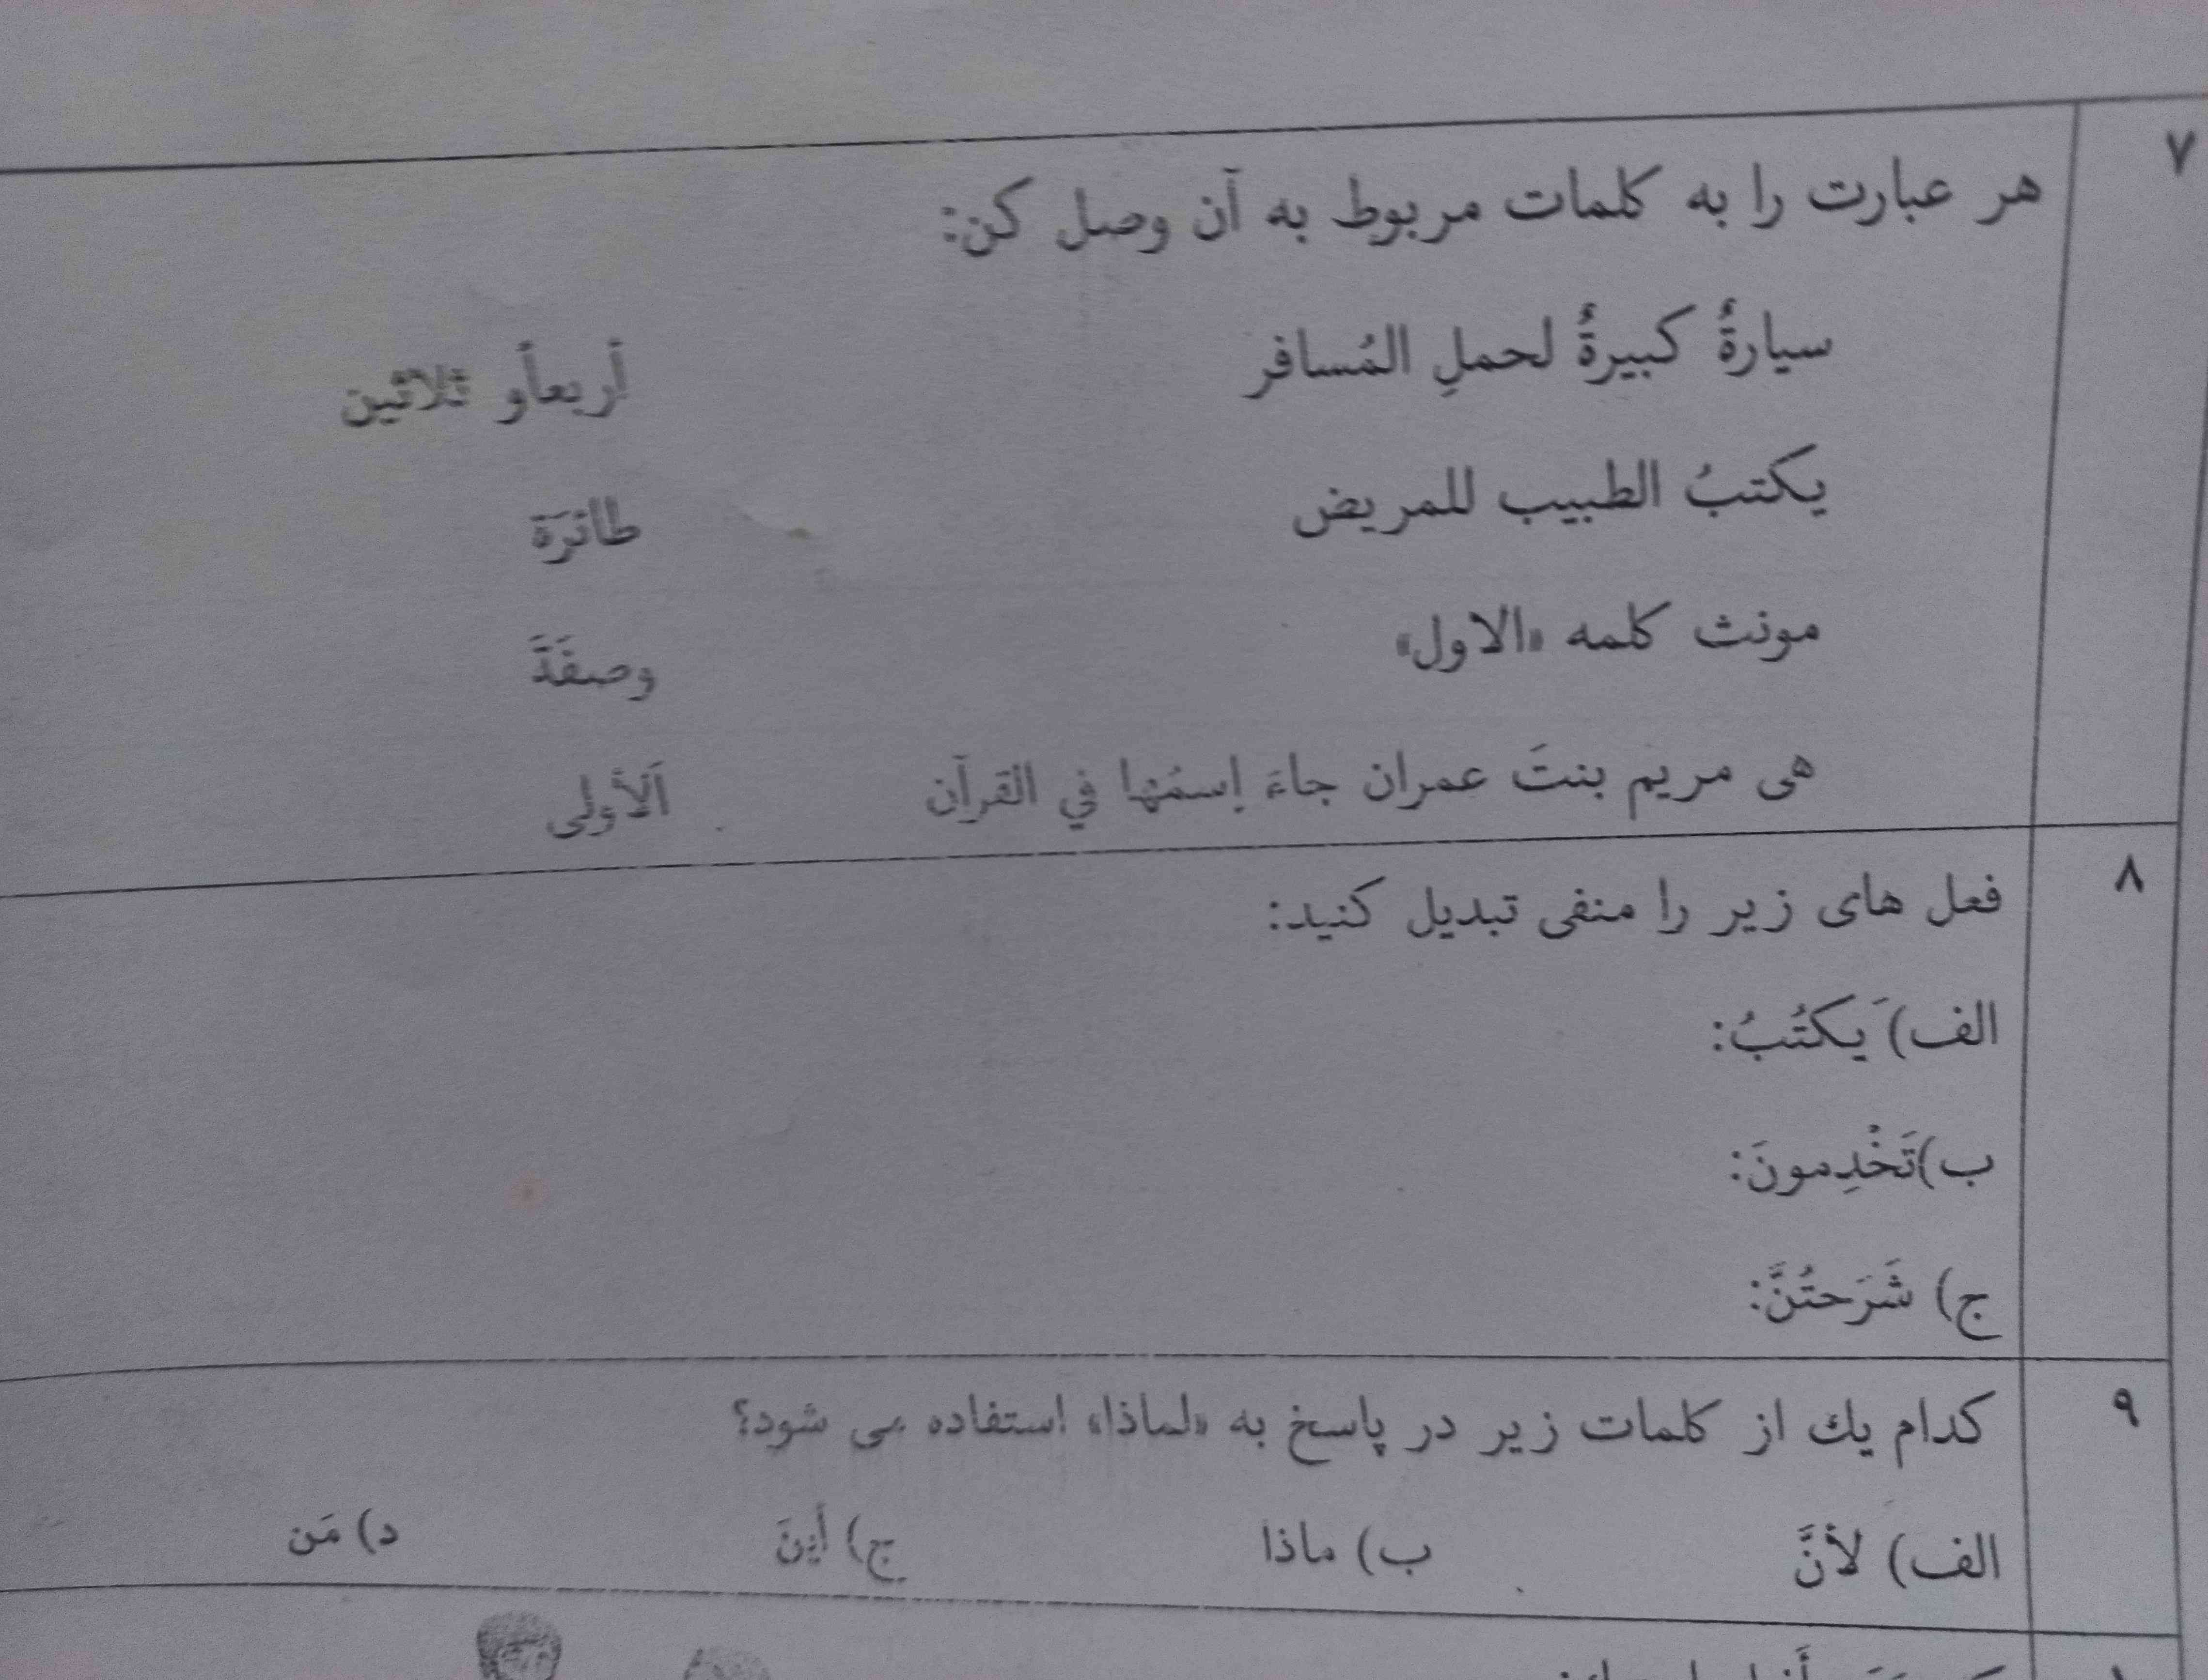 ۷
هر عبارت را به کلمات مربوط به آن وصل کن:
سیارةٌ کبیرةٌ لحملِ المُسافر أربعأو ثلاثین
یکتبُ الطبیب للمریض طائرَة
مونث کلمه «الاول» وصفَةَ
هی مریم بنتَ عمران جاءَ إسمُها في القرآن اَلأولی
۸
فعل های زیر را منفی تبدیل کنید:
الف) َیکتُبُ:
ب)تَخْدِمونَ:
ج) شَرَحتُنَّ:
۹
کدام یك از کلمات زیر در پاسخ به «لماذا» استفاده می شود؟
الف) لأنَّ ب) ماذا ج) أینَ د) مَن